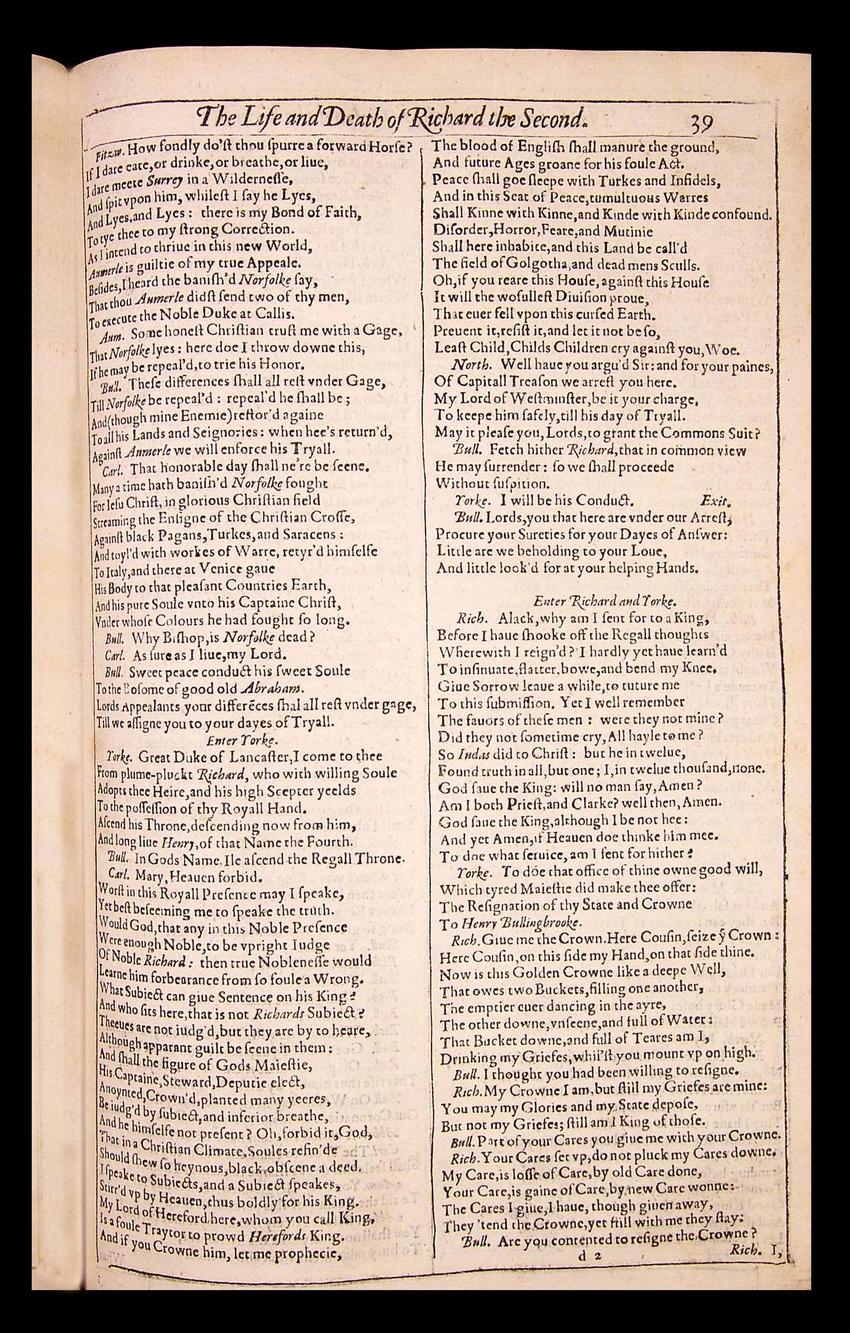 The Life and Death of Richard the Second. 39
Fitzw. How fondly do'ſt thou ſpurre a forward Horſe?
If I dare eate, or drinke, or breathe, or liue,
I dare meete Surrey in a Wilderneſſe,
And ſpit vpon him, whileſt I ſay he Lyes,
And Lyes, and Lyes: there is my Bond of Faith,
To tye thee to my ſtrong Correction.
As I intend to thriue in this new World,
Aumerle is guiltie of my true Appeale.
Beſides, I heard the baniſh'd Norfolke ſay,
That thou Aumerle didſt ſend two of thy men,
To execute the Noble Duke at Callis.
Aum. Some honeſt Chriſtian truſt me with a Gage,
That Norfolke lyes: here doe I throw downe this,
If he may be repeal'd, to trie his Honor.
Bull. Theſe differences ſhall all reſt vnder Gage,
Till Norfolke be repeal'd: repeal'd he ſhall be;
And (though mine Enemie) reſtor'd againe
To all his Lands and Seignories: when hee's return'd,
Againſt Aumerle we will enforce his Tryall.
Carl. That honorable day ſhall ne're be ſeene.
Many a time hath baniſh'd Norfolke fought
For Ieſu Chriſt, in glorious Chriſtian field
Streaming the Enſigne of the Chriſtian Croſſe,
Againſt black Pagans, Turkes, and Saracens:
And toyl'd with workes of Warre, retyr'd himſelfe
To Italy, and there at Venice gaue
His Body to that pleaſant Countries Earth,
And his pure Soule vnto his Captaine Chriſt,
Vnder whoſe Colours he had fought ſo long.
Bull. Why Biſhop, is Norfolke dead?
Carl. As ſure as I liue, my Lord.
Bull. Sweet peace conduct his ſweet Soule
To the Boſome of good old Abraham.
Lords Appealants your differēces ſhal all reſt vnder gage,
Till we aſſigne you to your dayes of Tryall.
Enter Yorke.
Yorke. Great Duke of Lancaſter, I come to thee
From plume-pluckt Richard, who with willing Soule
Adopts thee Heire, and his high Scepter yeelds
To the poſſeſſion of thy Royall Hand.
Aſcend his Throne, deſcending now from him,
And long liue Henry, of that Name the Fourth.
Bull. In Gods Name, Ile aſcend the Regall Throne.
Carl. Mary, Heauen forbid.
Worſt in this Royall Preſence may I ſpeake,
Yet beſt beſeeming me to ſpeake the truth.
Would God, that any in this Noble Preſence
Were enough Noble, to be vpright Iudge
Of Noble Richard: then true Nobleneſſe would
Learne him forbearance from ſo foule a Wrong.
What Subiect can giue Sentence on his King?
And who ſits here, that is not Richards Subiect?
Theeues are not iudg'd, but they are by to heare,
Although apparant guilt be ſeene in them:
And ſhall the figure of Gods Maieſtie,
His Captaine, Steward, Deputie elect,
Anoynted, Crown'd, planted many yeeres,
Be iudg'd by ſubiect, and inferior breathe,
And he himſelfe not preſent? Oh, forbid it, God,
That in a Chriſtian Climate, Soules refin'de
Should ſhew ſo heynous, black, obſcene a deed.
I ſpeake to Subiects, and a Subiect ſpeakes,
Stirr'd vp by Heauen, thus boldly for his King.
My Lord of Hereford here, whom you call King,
Is a foule Traytor to prowd Herefords King.
And if you Crowne him, let me prophecie,
The blood of Engliſh ſhall manure the ground,
And future Ages groane for his foule Act.
Peace ſhall goe ſleepe with Turkes and Infidels,
And in this Seat of Peace, tumultuous Warres
Shall Kinne with Kinne, and Kinde with Kinde confound.
Diſorder, Horror, Feare, and Mutinie
Shall here inhabite, and this Land be call'd
The field of Golgotha, and dead mens Sculls.
Oh, if you reare this Houſe, againſt this Houſe
It will the wofulleſt Diuiſion proue,
That euer fell vpon this curſed Earth.
Preuent it, reſiſt it, and let it not be ſo,
Leaſt Child, Childs Children cry againſt you, Woe.
North. Well haue you argu'd Sir: and for your paines,
Of Capitall Treaſon we arreſt you here.
My Lord of Weſtminſter, be it your charge,
To keepe him ſafely, till his day of Tryall.
May it pleaſe you, Lords, to grant the Commons Suit?
Bull. Fetch hither Richard, that in common view
He may ſurrender: ſo we ſhall proceede
Without ſuſpition.
Yorke. I will be his Conduct. Exit.
Bull. Lords, you that here are vnder our Arreſt,
Procure your Sureties for your Dayes of Anſwer:
Little are we beholding to your Loue,
And little look'd for at your helping Hands.
Enter Richard and Yorke.
Rich. Alack, why am I ſent for to a King,
Before I haue ſhooke off the Regall thoughts
Wherewith I reign'd? I hardly yet haue learn'd
To inſinuate, flatter, bowe, and bend my Knee.
Giue Sorrow leaue a while, to tuture me
To this ſubmiſſion. Yet I well remember
The fauors of theſe men: were they not mine?
Did they not ſometime cry, All hayle to me?
So Iudas did to Chriſt: but he in twelue,
Found truth in all, but one; I, in twelue thouſand, none.
God ſaue the King: will no man ſay, Amen?
Am I both Prieſt, and Clarke? well then, Amen.
God ſaue the King, although I be not hee:
And yet Amen, if Heauen doe thinke him mee.
To doe what ſeruice, am I ſent for hither?
Yorke. To doe that office of thine owne good will,
Which tyred Maieſtie did make thee offer:
The Reſignation of thy State and Crowne
To Henry Bullingbrooke.
Rich. Giue me the Crown. Here Couſin, ſeize ẏ Crown:
Here Couſin, on this ſide my Hand, on that ſide thine.
Now is this Golden Crowne like a deepe Well,
That owes two Buckets, filling one another,
The emptier euer dancing in the ayre,
The other downe, vnſeene, and full of Water:
That Bucket downe, and full of Teares am I,
Drinking my Griefes, whil'ſt you mount vp on high.
Bull. I thought you had been willing to reſigne.
Rich. My Crowne I am, but ſtill my Griefes are mine:
You may my Glories and my State depoſe,
But not my Griefes; ſtill am I King of thoſe.
Bull. Part of your Cares you giue me with your Crowne.
Rich. Your Cares ſet vp, do not pluck my Cares downe.
My Care, is loſſe of Care, by old Care done,
Your Care, is gaine of Care, by new Care wonne:
The Cares I giue, I haue, though giuen away,
They 'tend the Crowne, yet ſtill with me they ſtay:
Bull. Are you contented to reſigne the Crowne?
d 2 Rich. I,